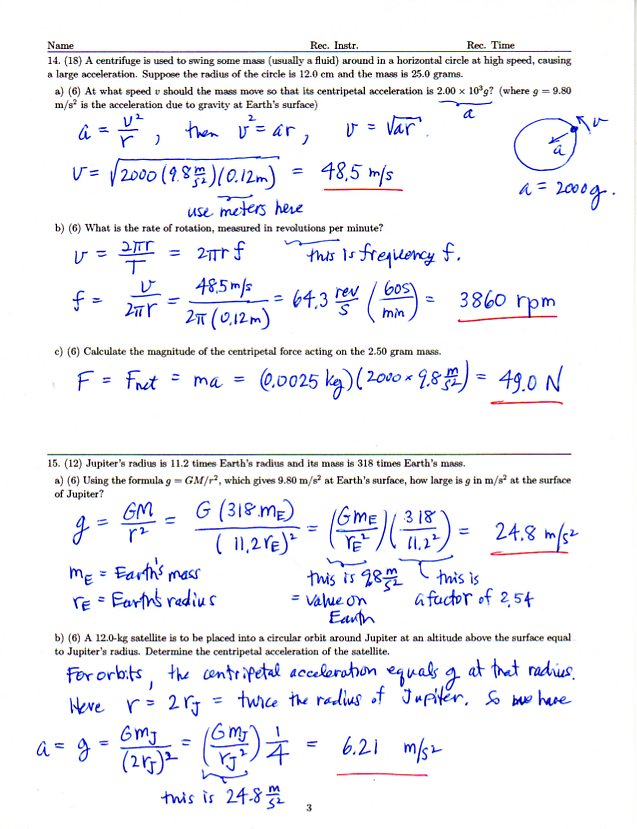 Name Rec. Instr. Rec. Time
14. (18) A centrifuge is used to swing some mass (usually a fluid) around in a horizontal circle at high speed, causing
a large acceleration. Suppose the radius of the circle is 12.0 cm and the mass is 25.0 grams.
a) (6) At what speed v should the mass move so that its centripetal acceleration is 2.00 × 10³g? (where g = 9.80
m/s² is the acceleration due to gravity at Earth's surface)
a
a = v²/r , then v² = ar, v = √ar.
v
a
a = 2000g.
v = √2000(9.8 m/s²)(0.12m) = 48.5 m/s
use meters here
b) (6) What is the rate of rotation, measured in revolutions per minute?
v = 2πr/T = 2πr f this is frequency f.
f = v/2πr = 48.5 m/s / 2π(0.12m) = 64.3 rev/s (60s/min) = 3860 rpm
c) (6) Calculate the magnitude of the centripetal force acting on the 2.50 gram mass.
F = Fnet = ma = (0.0025 kg)(2000 × 9.8 m/s²) = 49.0 N
15. (12) Jupiter's radius is 11.2 times Earth's radius and its mass is 318 times Earth's mass.
a) (6) Using the formula g = GM/r², which gives 9.80 m/s² at Earth's surface, how large is g in m/s² at the surface
of Jupiter?
g = GM/r² = G(318 mE)/(11.2 rE)² = (GmE/rE²)(318/11.2²) = 24.8 m/s²
mE = Earth's mass this is 9.8 m/s² this is
rE = Earth's radius = value on a factor of 2.54
Earth
b) (6) A 12.0-kg satellite is to be placed into a circular orbit around Jupiter at an altitude above the surface equal
to Jupiter's radius. Determine the centripetal acceleration of the satellite.
For orbits, the centripetal acceleration equals g at that radius.
Here r = 2rJ = twice the radius of Jupiter. So we have
a = g = GmJ/(2rJ)² = (GmJ/rJ²) 1/4 = 6.21 m/s²
this is 24.8 m/s²
3